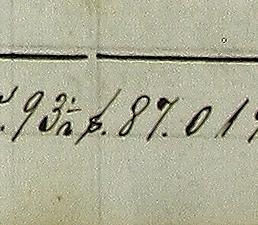 93½ $. 87. 01